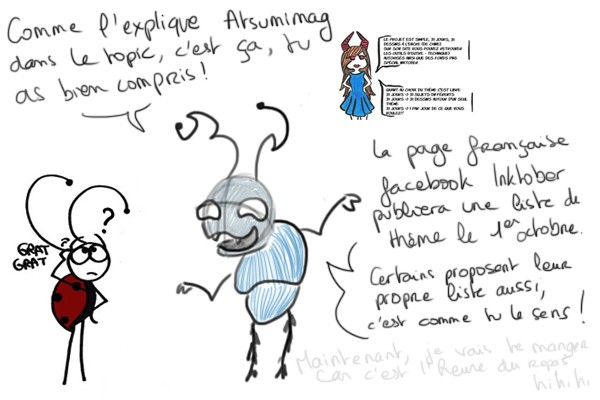 Comme l'explique Atsumimag
dans le topic, c'est ça, tu
as bien compris !
LE PROJET EST SIMPLE, 31 JOURS, 31
DESSINS A L'ENCRE (DE CHINE)
SUR SON SITE VOUS POUVEZ RETROUVER
LES OUTILS D'ENTRE - TECHNIQUES
AUTORISÉS AINSI QUE DES FONDS PRO
SPECIAL INKTOBER
QUANT AU CHOIX DU THÈME C'EST LIBRE:
31 JOURS -> 31 SUJETS DIFFÉRENTS
31 JOURS -> 31 DESSINS AUTOUR D'UN SEUL
THÈME
31 JOURS -> 1 PAR JOUR DE CE QUE VOUS
VOULEZ!!
La page française
facebook Inktober
publiera une liste de
thème le 1er octobre.
?
GRAT
GRAT
Certains proposent leur
propre liste aussi,
c'est comme tu le sens !
Maintenant, je vais te manger
Car c'est l'heure du repas
hihihi